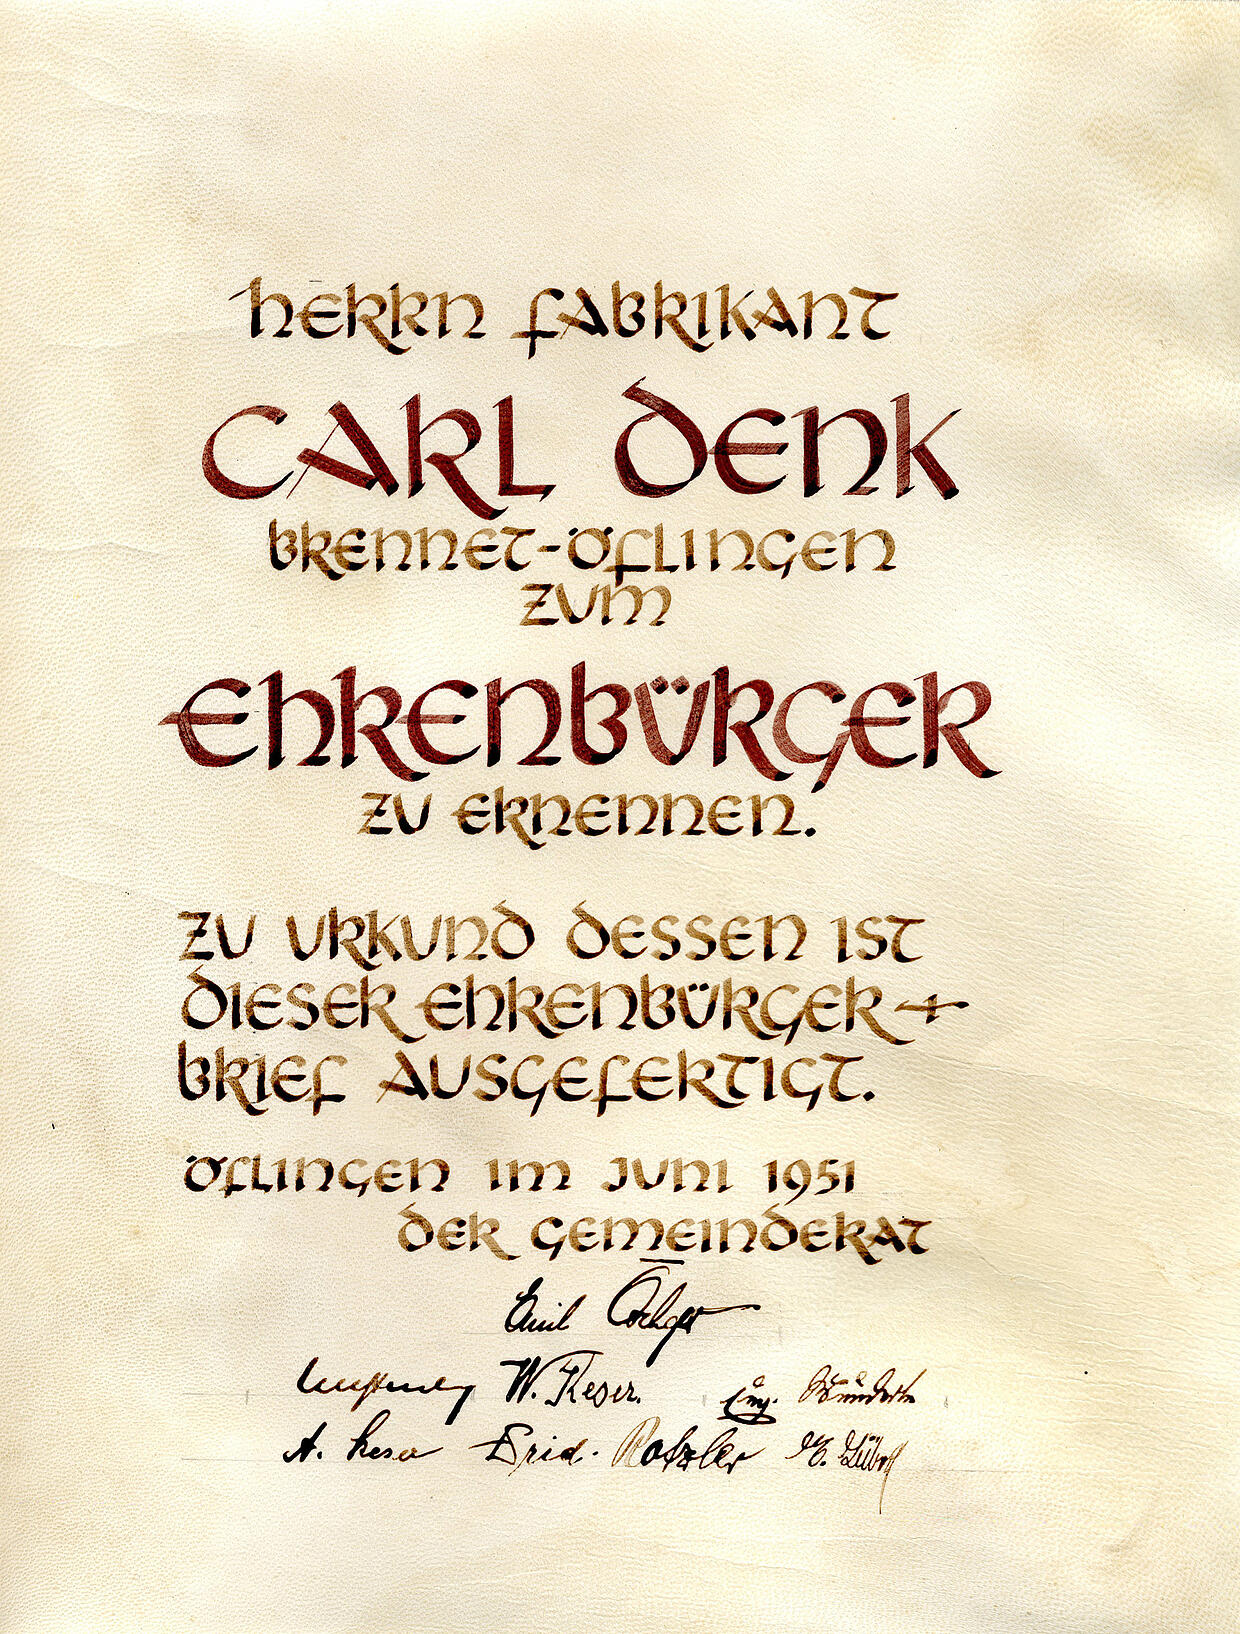 HERRN FABRIKANT
CARL DENK
BRENNET-ÖFLINGEN
ZUM
EHRENBÜRGER
ZU ERNENNEN.
ZU URKUND DESSEN IST
DIESER EHRENBÜRGER-
BRIEF AUSGEFERTIGT.
ÖFLINGEN IM JUNI 1951
DER GEMEINDERAT
Emil
W. Keser.
Eug.
A. Keser Frid. Rotzler